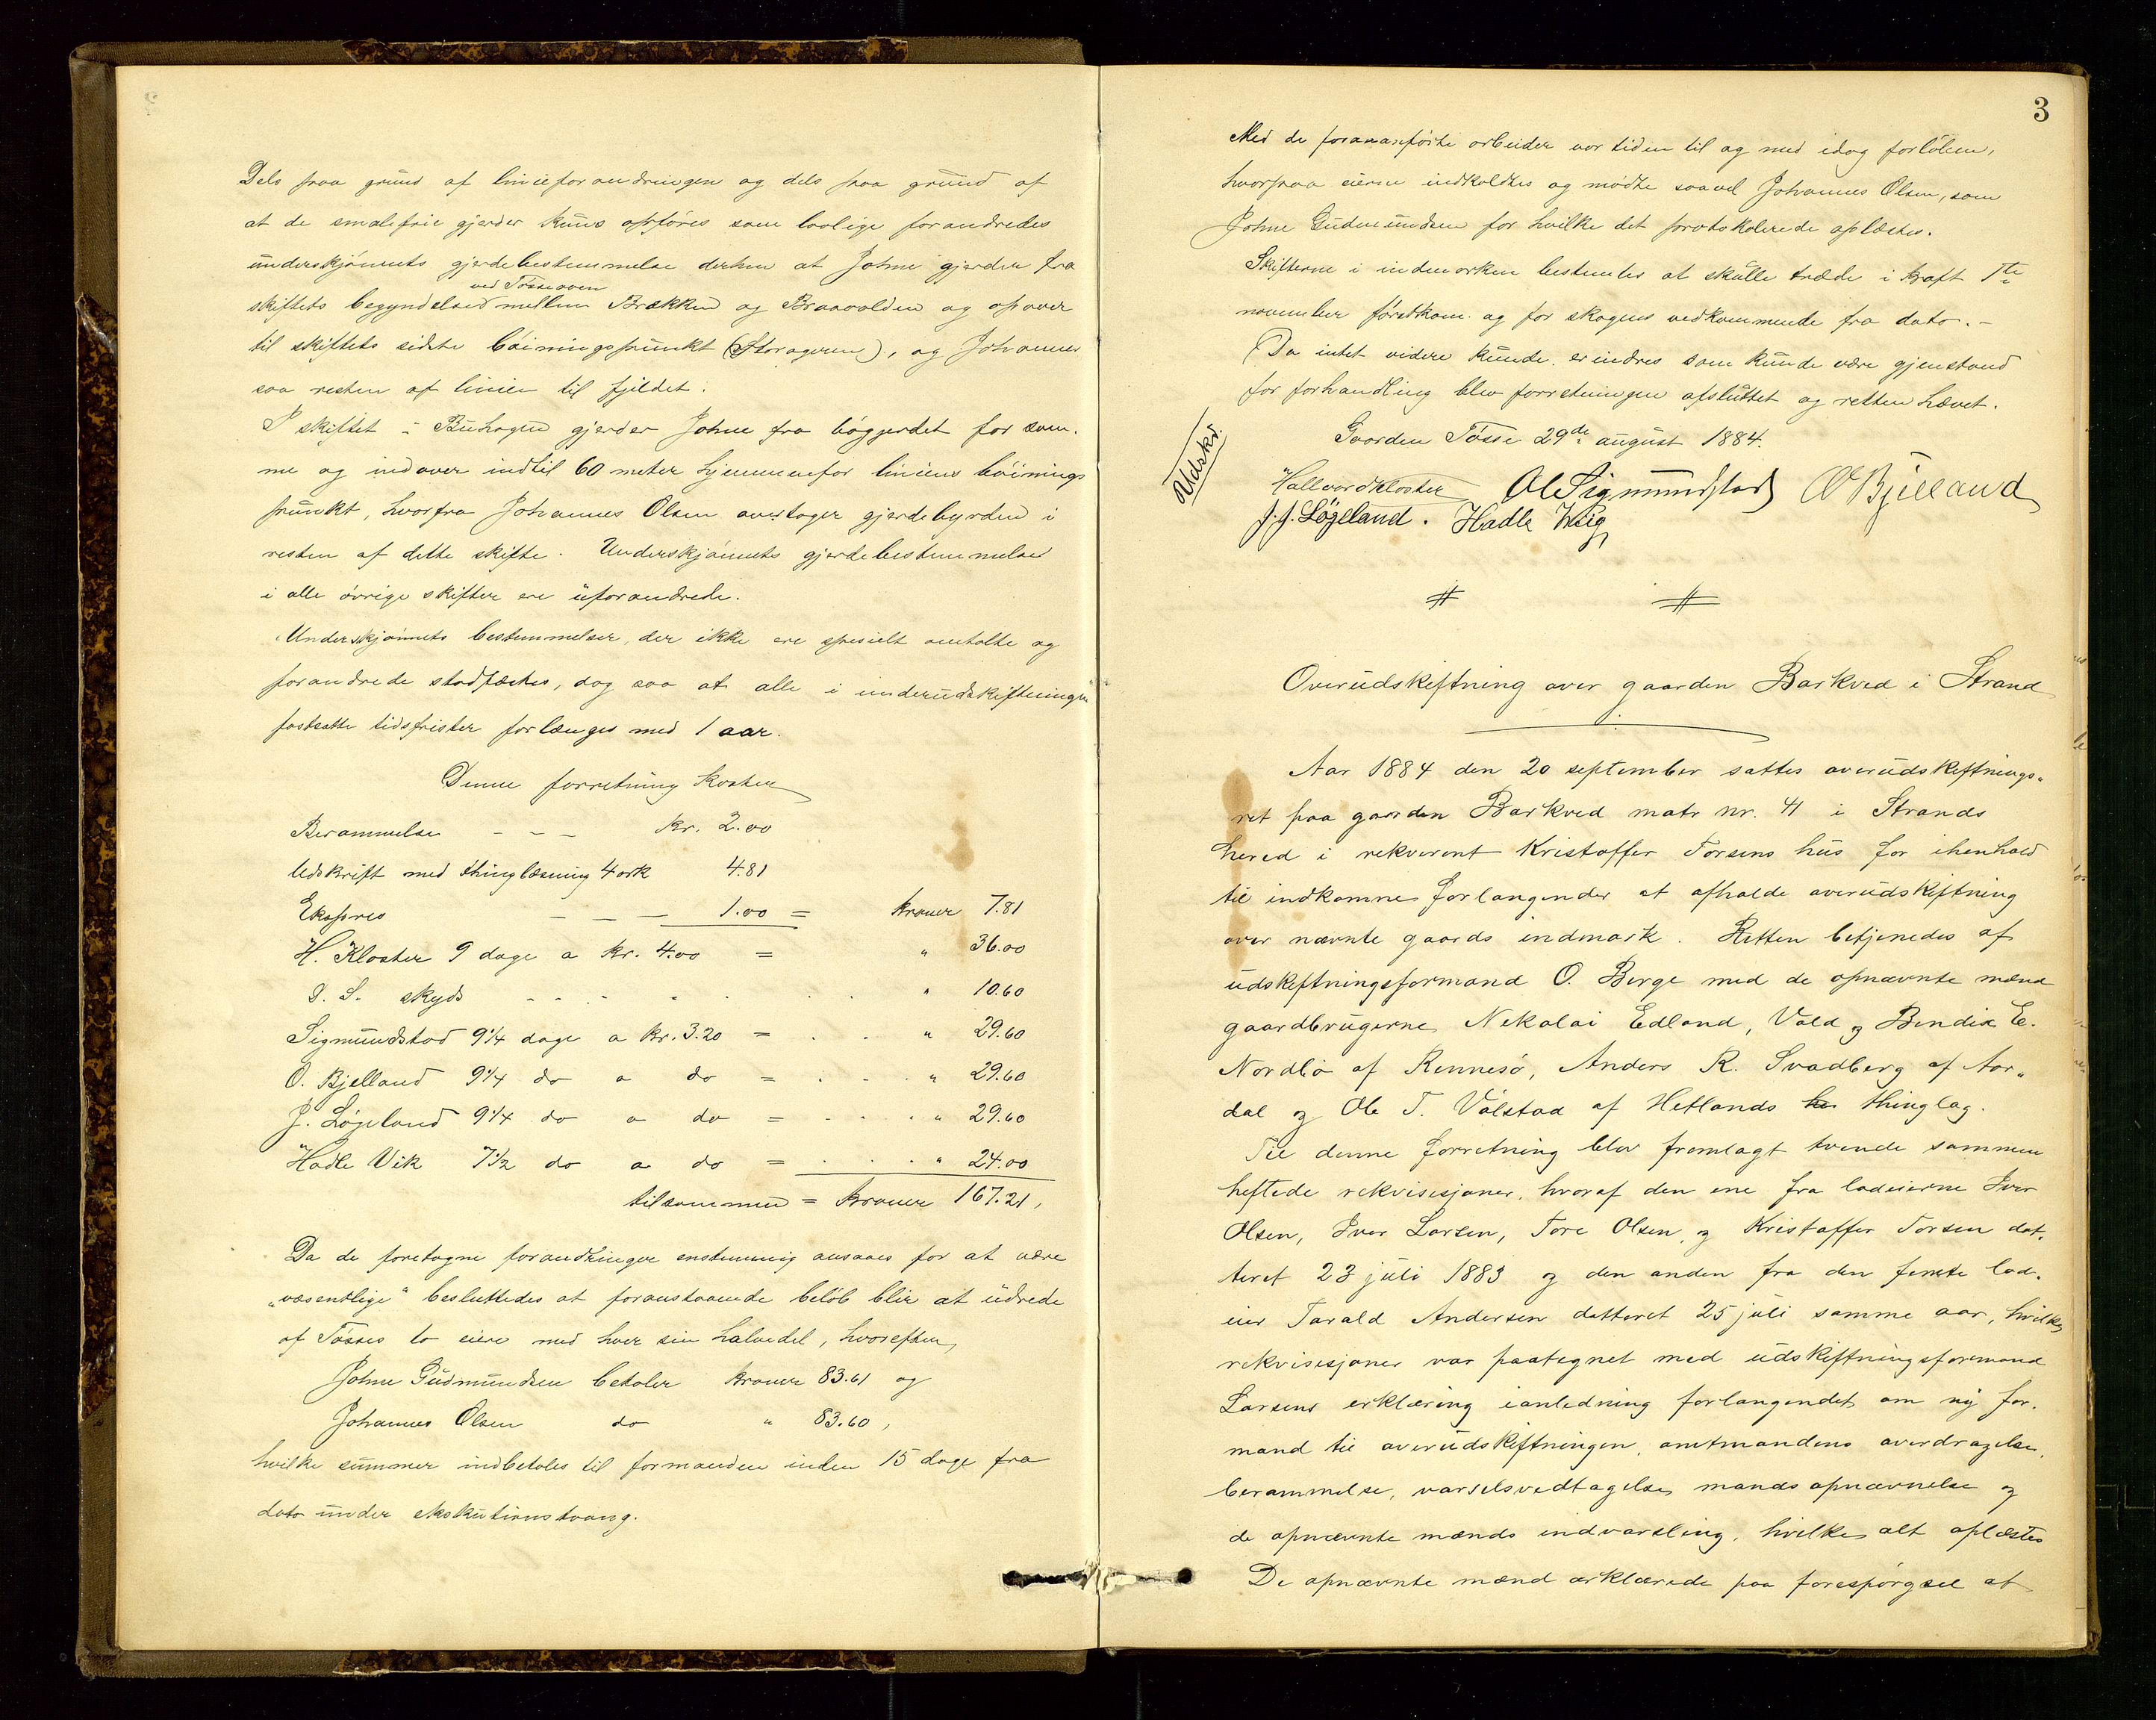 Dels paa grund af linieforandringen og dels paa grund af
at de smalefrie gjerder kuns opføres som lovlige forandredes
underskjønnets gjerdebestemmelse derhen at Johne gjerder fra
ved Tøsseaaen
skiftets begyndelse mellem Brækken og Braavolden og opover
til skiftets sidste bøiningspunkt (Storageren), og Johannes
saa resten af linien til fjeldet.
I skiftet i Buhagen gjerder Johne fra bøgjerdet for som-
me og indover indtil 60 meter hjemmenfor liniens bøinings
punkt, hvorfra Johannes Olsen overtager gjerdebyrden i
resten af dette skifte. Underskjønnets gjerdebestemmelser
i alle øvrige skifter ere uforandrede.
Underskjønnets bestemmelser, der ikke ere specielt omtalte og
forandrede stadfæstes, dog saa at alle i underudskiftningen
fastsatte tidsfrister forlænges med 1 aar.
Denne forretning koster
Berammelse - - - Kr. 2.00
Udskrift med thinglæsning 4 ark 4.81
Ekspres - - - 1.00 = Kroner 7.81
H. Kloster 9 dage a Kr. 4.00 = " 36.00
D. S. skyds - - - " 10.60
Sigmundstad 9¼ dage a Kr. 3.20 = " 29.60
O. Bjelland 9¼ do a do = " 29.60
J. Løgeland 9¼ do a do = " 29.60
Hadle Vik 7½ do a do = " 24.00
tilsammen = Kroner 167.21,
Da de foretagne forandringer enstemmig ansaaes for at være
"væsentlige" besluttedes at foranstaaende beløb blir at udrede
af Tøsses to eiere med hver sin halvedel, hvorefter
Johne Gudmundsen betaler Kroner 83.61 og
Johannes Olsen do " 83.60,
hvilke summer indbetales til formanden inden 15 dage fra
dato under eksekutionstvang.
3
Med de forananførte arbeider var tiden til og med idag forløben,
hvorpaa eierne indkaldtes og mødte saavel Johannes Olsen, som
Johne Gudmundsen for hvilke det protokolerede oplæstes.
Skifterne i indmarken bestemtes at skulle træde i kraft 1te
november førstkom. og for skogens vedkommende fra dato. -
Da intet videre kunde erindres som kunde være gjenstand
for forhandling blev forretningen afsluttet og retten hævet.
Udskr.
Gaarden Tøsse 29de august 1884.
Hallvard Kloster Ol Sigmundstad O Bjelland
J. J. Løgeland. Hadle Wiig
Overudskiftning over gaarden Barkved i Strand
Aar 1884 den 20 september sattes overudskiftnings-
ret paa gaarden Barkved matr nr. 41 i Strands
hered i rekvirent Kristoffer Torsens hus for ihenhold
til indkomne forlangender at afholde overudskiftning
over nævnte gaards indmark. Retten betjenedes af
udskiftningsformand O. Berge med de opnævnte mænd
gaardbrugerne Nekolai Edland, Vold og Bendix E.
Nordbø af Rennesø, Anders R. Svadberg af Aar-
dal og Ole T. Vølstad af Hetlands thinglag.
Til denne forretning blev fremlagt tvende sammen
heftede rekvisisjoner, hvoraf den ene fra lodeierne Iver
Olsen, Iver Larsen, Tore Olsen, og Kristoffer Torsen dat-
teret 23 juli 1883 og den anden fra den femte lod-
eier Tarald Andersen datteret 25 juli samme aar, hvilke
rekvisisjoner var paategnet med udskiftningsformand
Larsens erklæring ianledning forlangendet om ny for-
mand til overudskiftningen, amtmandens overdragelse,
berammelse, varselsvedtagelse, mandsopnævnelse og
de opnævnte mænds indvarsling, hvilke alt oplæstes
De opnævnte mænd erklærede paa forespørgsel at